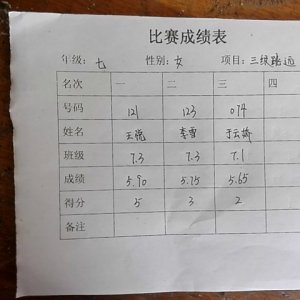 比赛成绩表
年级: 七 性别: 女 项目: 三级跳远
名次 一 二 三 四
号码 121 123 074
姓名 李雪
班级 7.3 7.3 7.1
成绩 5.90 5.75 5.65
得分 5 3 2
备注